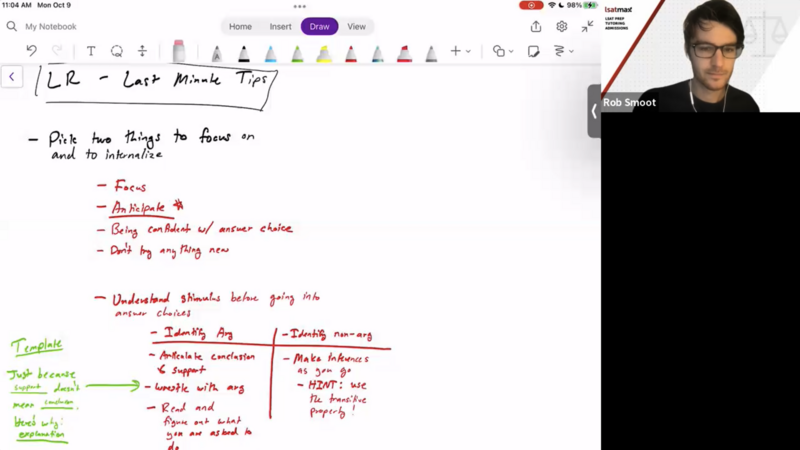 11:04 AM Mon Oct 9
98%
My Notebook
Home Insert Draw View
lsatmax
LSAT PREP
TUTORING
ADMISSIONS
Rob Smoot
LR - Last Minute Tips
- Pick two things to focus on
and to internalize
- Focus
- Anticipate *
- Being confident w/ answer choice
- Don't try anything new
- Understand stimulus before going into
answer choices
- Identify Arg
- Articulate conclusion
& support
- Wrestle with arg
- Read and
figure out what
you are asked to
do
- Identify non-arg
- Make inferences
as you go
- HINT: use
the transitive
property!
Template
Just because
support doesn't
mean conclusion.
Here's why:
explanation